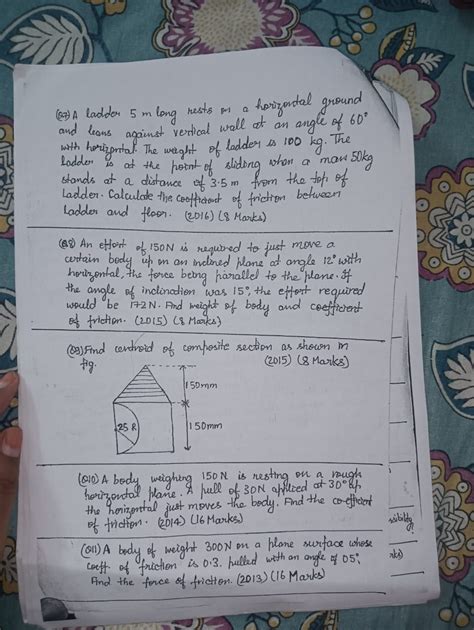 (Q7) A ladder 5 m long rests on a horizontal ground
and leans against vertical wall at an angle of 60°
with horizontal. The weight of ladder is 100 kg. The
ladder is at the point of sliding when a man 50kg
stands at a distance of 3.5 m from the top of
ladder. Calculate the coefficient of friction between
ladder and floor. (2016) (8 Marks)
(Q8) An effort of 150N is required to just move a
certain body up on an inclined plane at angle 12° with
horizontal, the force being parallel to the plane. If
the angle of inclination was 15°, the effort required
would be 172N. Find weight of body and coefficient
of friction. (2015) (8 Marks)
(Q9) Find centroid of composite section as shown in
fig. (2015) (8 Marks)
150mm
25 R
150mm
(Q10) A body weighing 150N is resting on a rough
horizontal plane. A pull of 30N applied at 30° up
the horizontal just moves the body. Find the coefficient
of friction. (2014) (16 Marks)
(Q11) A body of weight 300N on a plane surface whose
coeff of friction is 0.3. pulled with an angle of 05°,
Find the force of friction. (2013) (16 Marks)